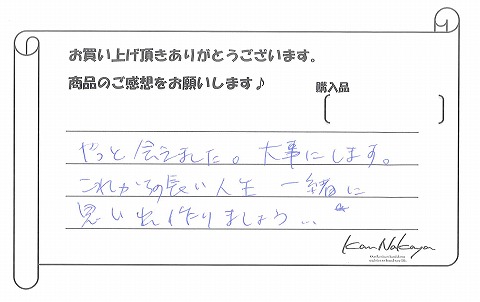 お買い上げ頂きありがとうございます。
商品のご感想をお願いします♪
購入品
やっと会えました。大事にします。
これからの長い人生 一緒に
思い出作りましょう…
Kan Nakaya